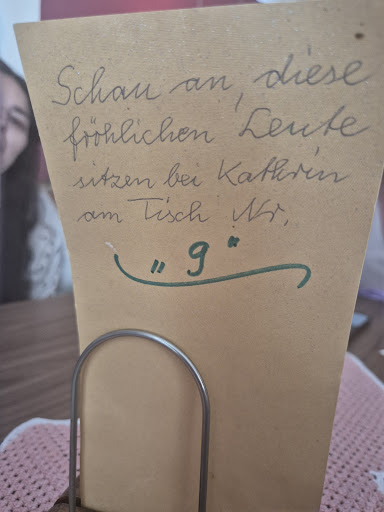 Schau an, diese
fröhlichen Leute
sitzen bei Kathrin
am Tisch Nr.
"9"